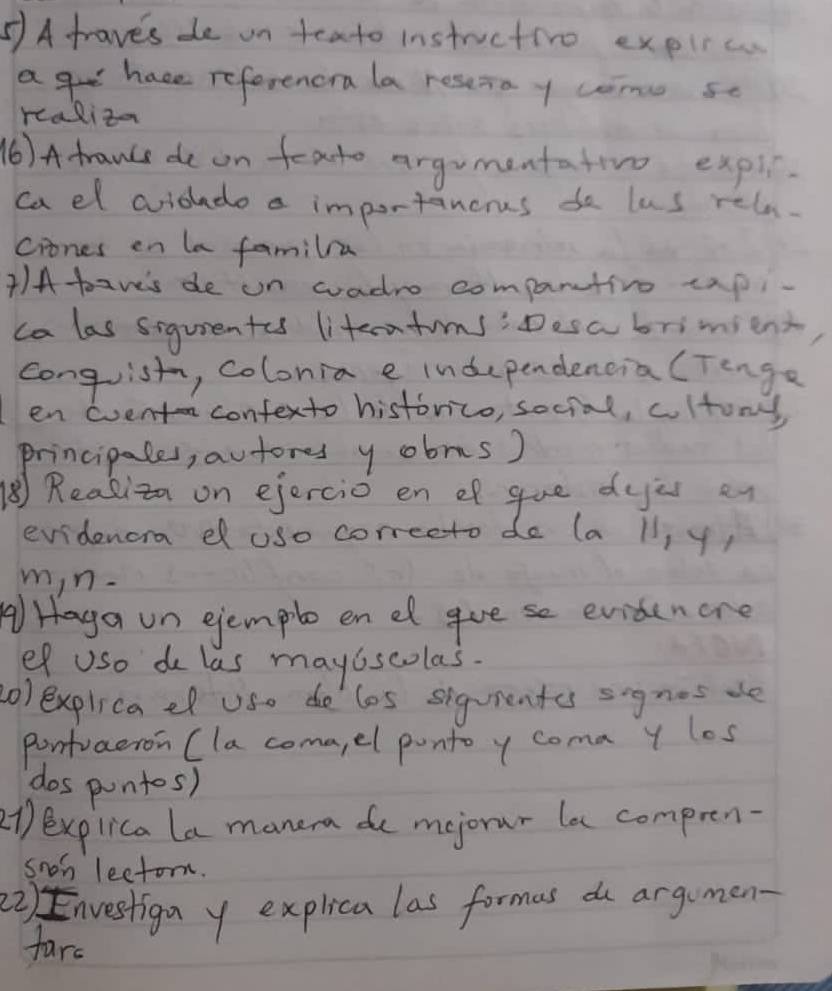 5) A través de un texto instructivo explica
a qué hace referencia la reseña y cómo se
realiza
16) A través de un texto argumentativo expli-
ca el cuidado o importancias de las rela-
ciones en la familia
7) A través de un cuadro comparativo expi-
ca las siguientes literaturas: Descubrimiento,
conquista, colonia e independencia (Tenga
en cuenta contexto histórico, social, cultural,
principales, autores y obras)
18) Realiza un ejercio en el que dejes en
evidencia el uso correcto de la ll, y,
m, n.
19) Haga un ejemplo en el que se evidencie
el uso de las mayúsculas.
20) explica el uso de los siguientes signos de
puntuación (la coma, el punto y coma y los
dos puntos)
21) Explica la manera de mejorar la compren-
sión lectora.
22) Investiga y explica las formas de argumen-
tarc